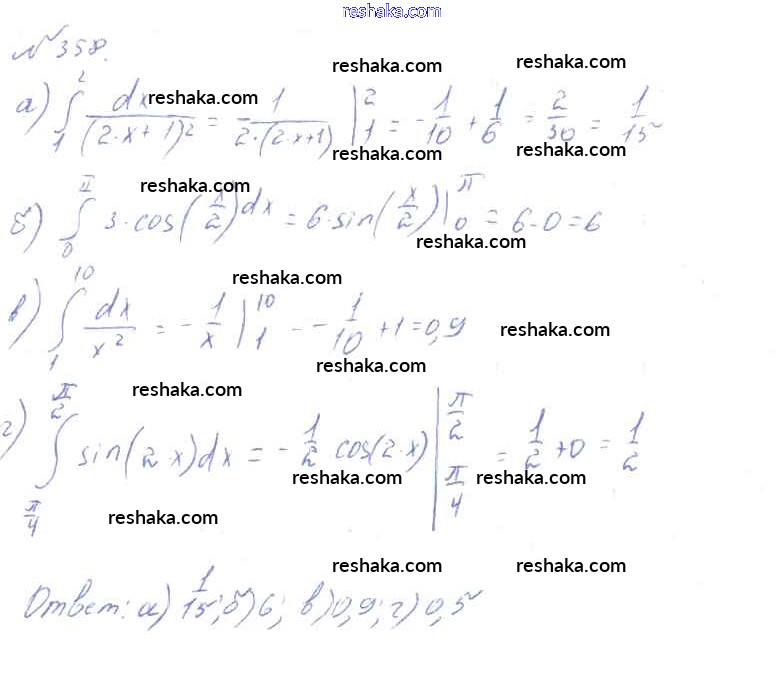 reshaka.com
№ 358.
reshaka.com reshaka.com
а) ∫₁² dx/(2·x+1)² = -1/(2·(2·x+1)) |₁² = -1/10 + 1/6 = 2/30 = 1/15
reshaka.com
reshaka.com reshaka.com
reshaka.com
б) ∫₀^π 3·cos(x/2)dx = 6·sin(x/2)|₀^π = 6-0=6
reshaka.com
reshaka.com
в) ∫₁¹⁰ dx/x² = -1/x |₁¹⁰ = -1/10 +1=0,9
reshaka.com
reshaka.com
reshaka.com
г) ∫_{π/4}^{π/2} sin(2·x)dx = -1/2 cos(2·x) |_{π/4}^{π/2} = 1/2 +0 = 1/2
reshaka.com reshaka.com
reshaka.com
reshaka.com reshaka.com
Ответ: а) 1/15; б)6; в)0,9; г)0,5